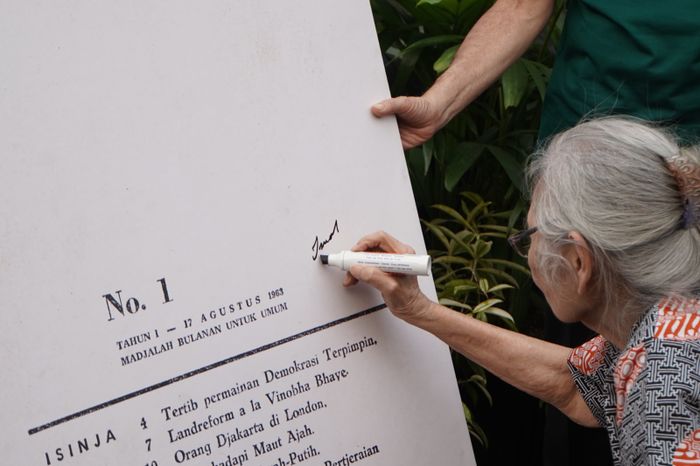 No. 1
TAHUN I — 17 AGUSTUS 1963
MADJALAH BULANAN UNTUK UMUM
ISINJA
4 Tertib permainan Demokrasi Terpimpin.
7 Landreform a la Vinobha Bhave.
Orang Djakarta di London.
Maut Ajah.
-Putih.
Pertjeraian